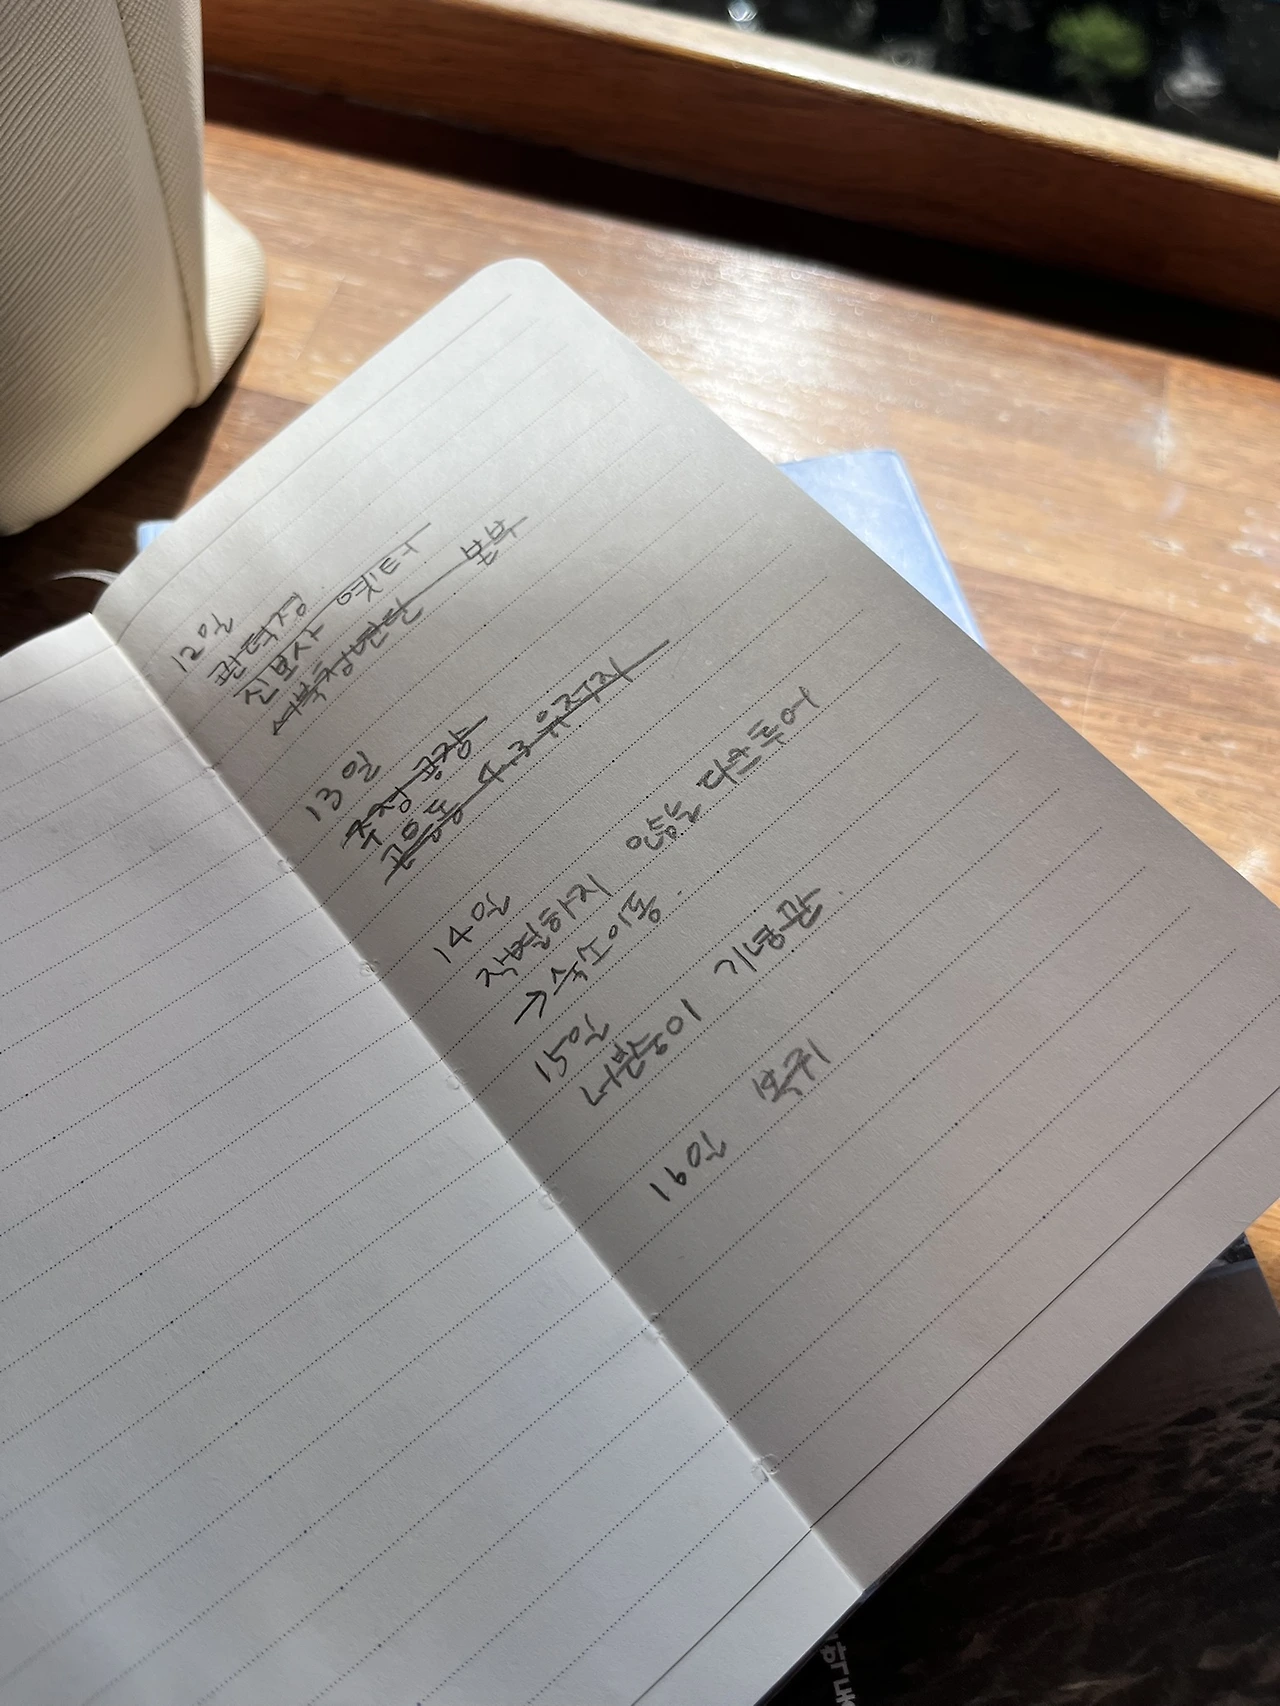 12일
관덕정
신보사 옛터
서북청년단 본부
13일
주정공장
곤을동 4.3 유적지
14일
작별하지 않는 다크투어
→ 숙소이동.
15일
너븐숭이 기념관.
16일 복귀